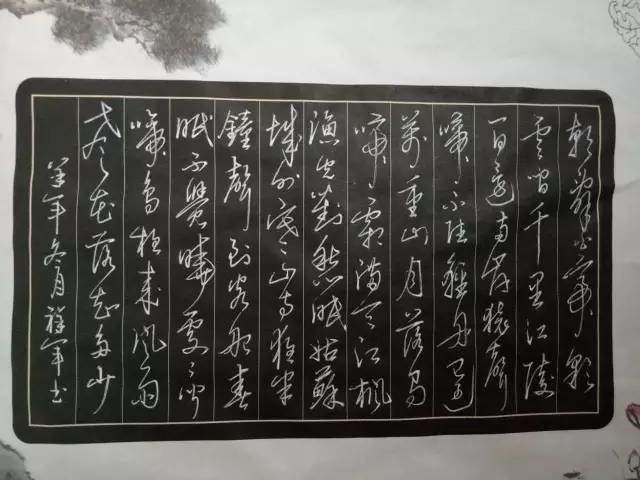 朝辞白帝彩
雲間千里江陵
一日還兩岸猿聲
啼不住輕舟已過
萬重山月落烏
啼霜滿天江楓
漁火對愁眠姑蘇
城外寒山寺夜半
鐘聲到客船春
眠不覺曉處々聞
啼鳥夜来風雨
声花落知多少
年冬月祥军书